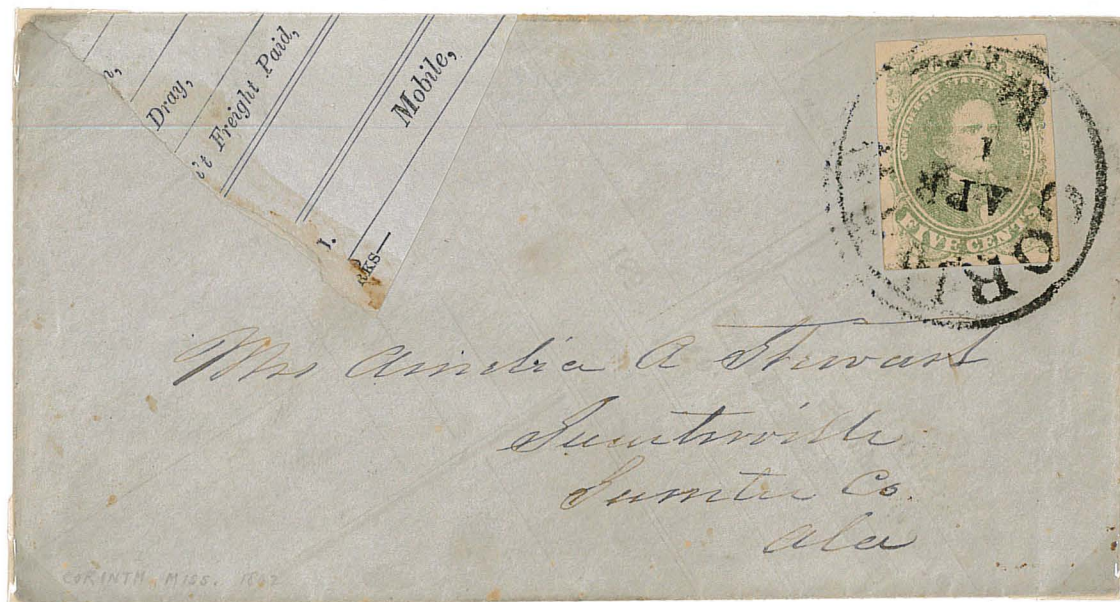 Dray,
Freight Paid,
Mobile,
FIVE CENTS
APR
1
Mrs Amelia A Stewart
Sumterville
Sumter Co.
Ala
CORINTH, MISS. 1862